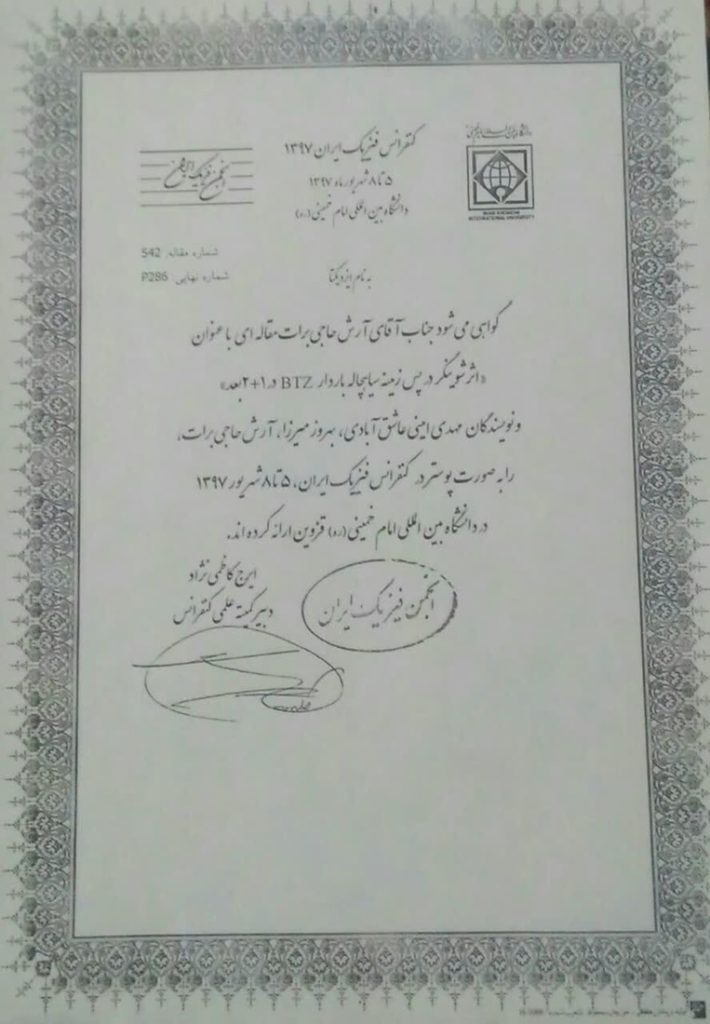 کنفرانس فیزیک ایران ۱۳۹۷
۵ تا ۸ شهریور ماه ۱۳۹۷
دانشگاه بین المللی امام خمینی (ره)
IMAM KHOMEINI
INTERNATIONAL UNIVERSITY
انجمن فیزیک ایران
شماره مقاله: 542
شماره نهایی: P286
به نام ایزد یکتا
گواهی می شود جناب آقای آرش حاجی برات مقاله ای با عنوان
«اثر شوینگر در پس زمینه سیاهچاله باردار BTZ در ۱+۲ بعد»
و نویسندگان مهدی امینی عاشق آبادی، بهروز میرزا، آرش حاجی برات،
را به صورت پوستر در کنفرانس فیزیک ایران، ۵ تا ۸ شهریور ۱۳۹۷
در دانشگاه بین المللی امام خمینی (ره) قزوین ارائه کرده اند.
ایرج کاظمی نژاد
دبیر کمیته علمی کنفرانس
انجمن فیزیک ایران